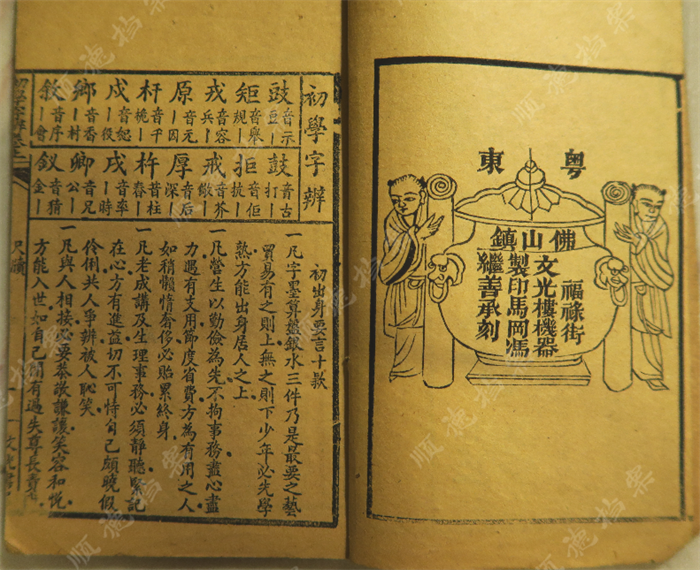 粤東
佛山鎮
福祿街
文光樓機器
製印馬岡馮
繼善承刻
初學字辨
豉 音示 豆｜
矩 音舉 規｜
戎 音容 兵｜
原 音元
杆 音干 桅｜
戍 音恕 ｜役
鄉 音香 ｜村
敘 音序 ｜會
鼓 音古 打｜
拒 音佢
戒 音芥
厚 音后 深｜
杵 音柱 舂｜
戌 音率 ｜時
卿 音兄 公｜
釵 音猜 金｜
初出身要言十款
一凡字墨算盤銀水三件乃是最要之藝
貿易有之則上無之則下少年必先學
熟方能出身居人之上
一凡營生以勤儉為先不拘事務盡心盡
力遇有支用節度省費方為有用之人
如稍懶惰奢侈必貽累終身
一凡老成講及生理事務必須靜聽緊記
在心方有進益切不可恃自己頗曉假
伶俐共人爭辨被人恥笑
一凡與人相接必要恭敬謙讓笑容和悅
方能入世如自己間有過失尊長責
尺牘
一
顺德档案